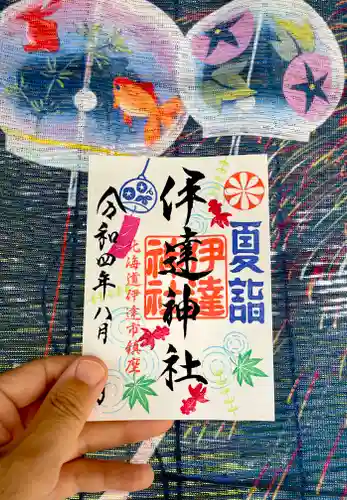 夏詣
伊達神社
伊達
神社
北海道伊達市鎮座
令和四年八月
日